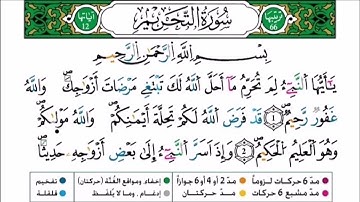 آياتها 12
سُورَةُ التَّحْرِيمِ
ترتيبها 66
بِسْمِ اللَّهِ الرَّحْمَٰنِ الرَّحِيمِ
يَا أَيُّهَا النَّبِيُّ لِمَ تُحَرِّمُ مَا أَحَلَّ اللَّهُ لَكَ تَبْتَغِي مَرْضَاتَ أَزْوَاجِكَ وَاللَّهُ
غَفُورٌ رَحِيمٌ 1 قَدْ فَرَضَ اللَّهُ لَكُمْ تَحِلَّةَ أَيْمَانِكُمْ وَاللَّهُ مَوْلَاكُمْ
وَهُوَ الْعَلِيمُ الْحَكِيمُ 2 وَإِذْ أَسَرَّ النَّبِيُّ إِلَىٰ بَعْضِ أَزْوَاجِهِ حَدِيثًا
مدّ 6 حركات لزوماً مدّ 2 أو 4 أو 6 جوازاً إخفاء، ومواقع الغُنَّة (حركتان) تفخيم
مدّ مشبع 6 حركات مدّ حركتان إدغام، وما لا يُلفَظ قلقلة